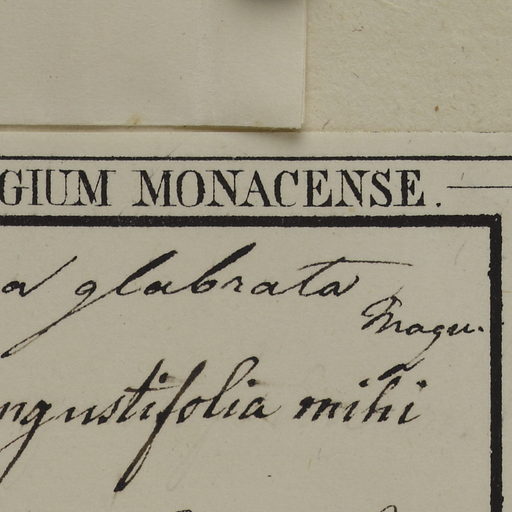 GIUM MONACENSE.
a glabrata
Magu.
ngustifolia mihi